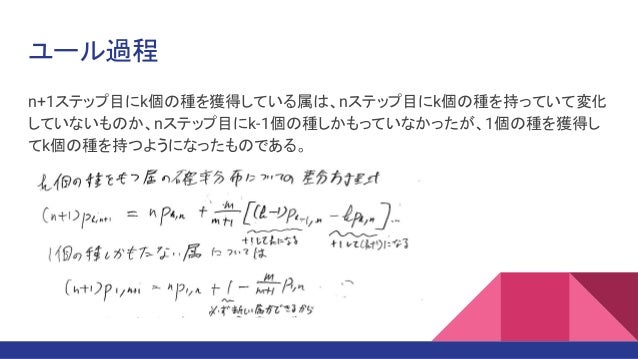 ユール過程
n+1ステップ目にk個の種を獲得している属は、nステップ目にk個の種を持っていて変化
していないものか、nステップ目にk-1個の種しかもっていなかったが、1個の種を獲得し
てk個の種を持つようになったものである。
k個の種をもつ属の確率分布についての差分方程式
(n+1)p_{k,n+1} = n p_{k,n} + m/(m+1) [(k-1)p_{k-1,n} - k p_{k,n}] …
+1してkになる +1して(k+1)になる
1個の種しかもたない属については
(n+1)p_{1,n+1} = n p_{1,n} + 1 - m/(m+1) p_{1,n}
必ず新しい属ができるから